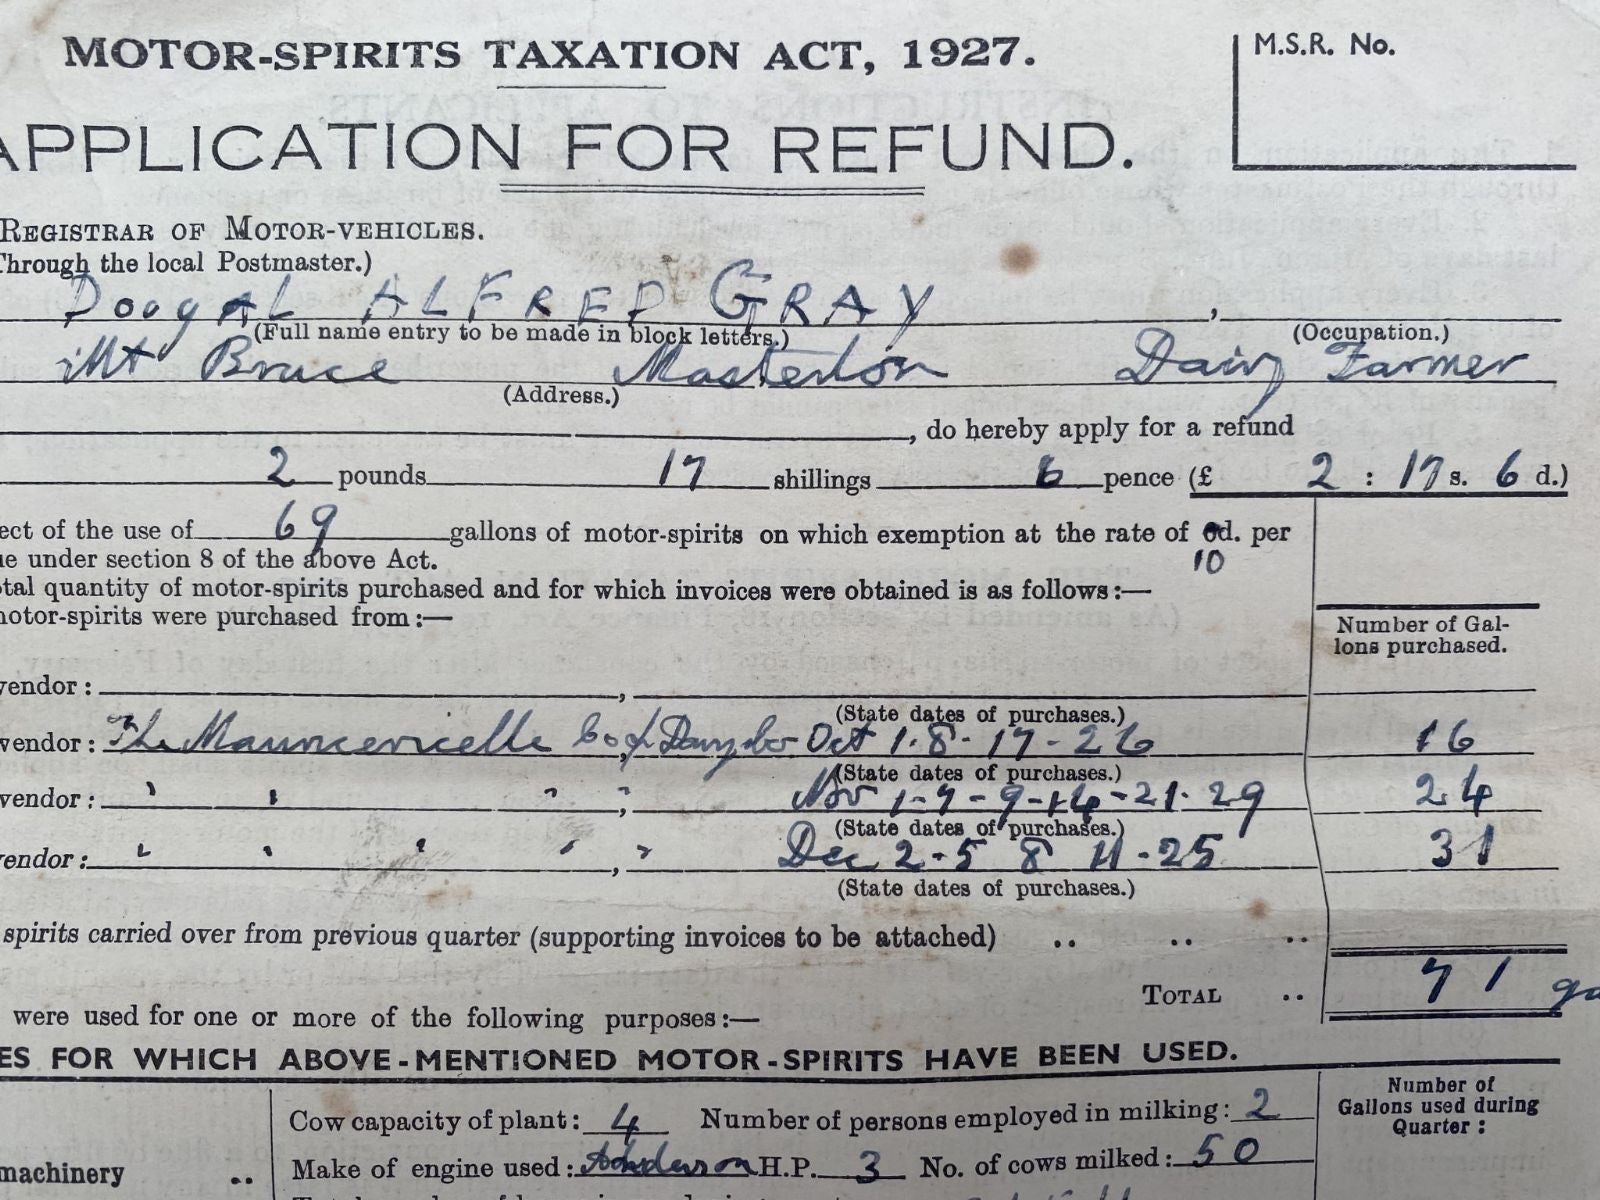 MOTOR-SPIRITS TAXATION ACT, 1927.
M.S.R. No.
APPLICATION FOR REFUND.
REGISTRAR OF MOTOR-VEHICLES.
Through the local Postmaster.)
DOUGAL ALFRED GRAY,
(Full name entry to be made in block letters.) (Occupation.)
Mt Bruce Masterton Dairy Farmer
(Address.)
, do hereby apply for a refund
2 pounds 17 shillings 6 pence (£ 2 : 17 s. 6 d.)
ect of the use of 69 gallons of motor-spirits on which exemption at the rate of d. per
10
ue under section 8 of the above Act.
otal quantity of motor-spirits purchased and for which invoices were obtained is as follows:—
motor-spirits were purchased from:—
Number of Gal-
lons purchased.
vendor: ,
(State dates of purchases.)
vendor: The Mauriceville Co, Dairy Co Oct 1-8-17-26 16
(State dates of purchases.)
vendor: " " " " Nov 1-7-9-14-21-29 24
(State dates of purchases.)
vendor: " " " " " Dec 2-5 8 11-25 31
(State dates of purchases.)
spirits carried over from previous quarter (supporting invoices to be attached) .. .. ..
TOTAL .. 71 ga
were used for one or more of the following purposes:—
ES FOR WHICH ABOVE-MENTIONED MOTOR-SPIRITS HAVE BEEN USED.
Number of
Gallons used during
Quarter:
Cow capacity of plant: 4 Number of persons employed in milking: 2
machinery .. Make of engine used: Anderson H.P. 3 No. of cows milked: 50